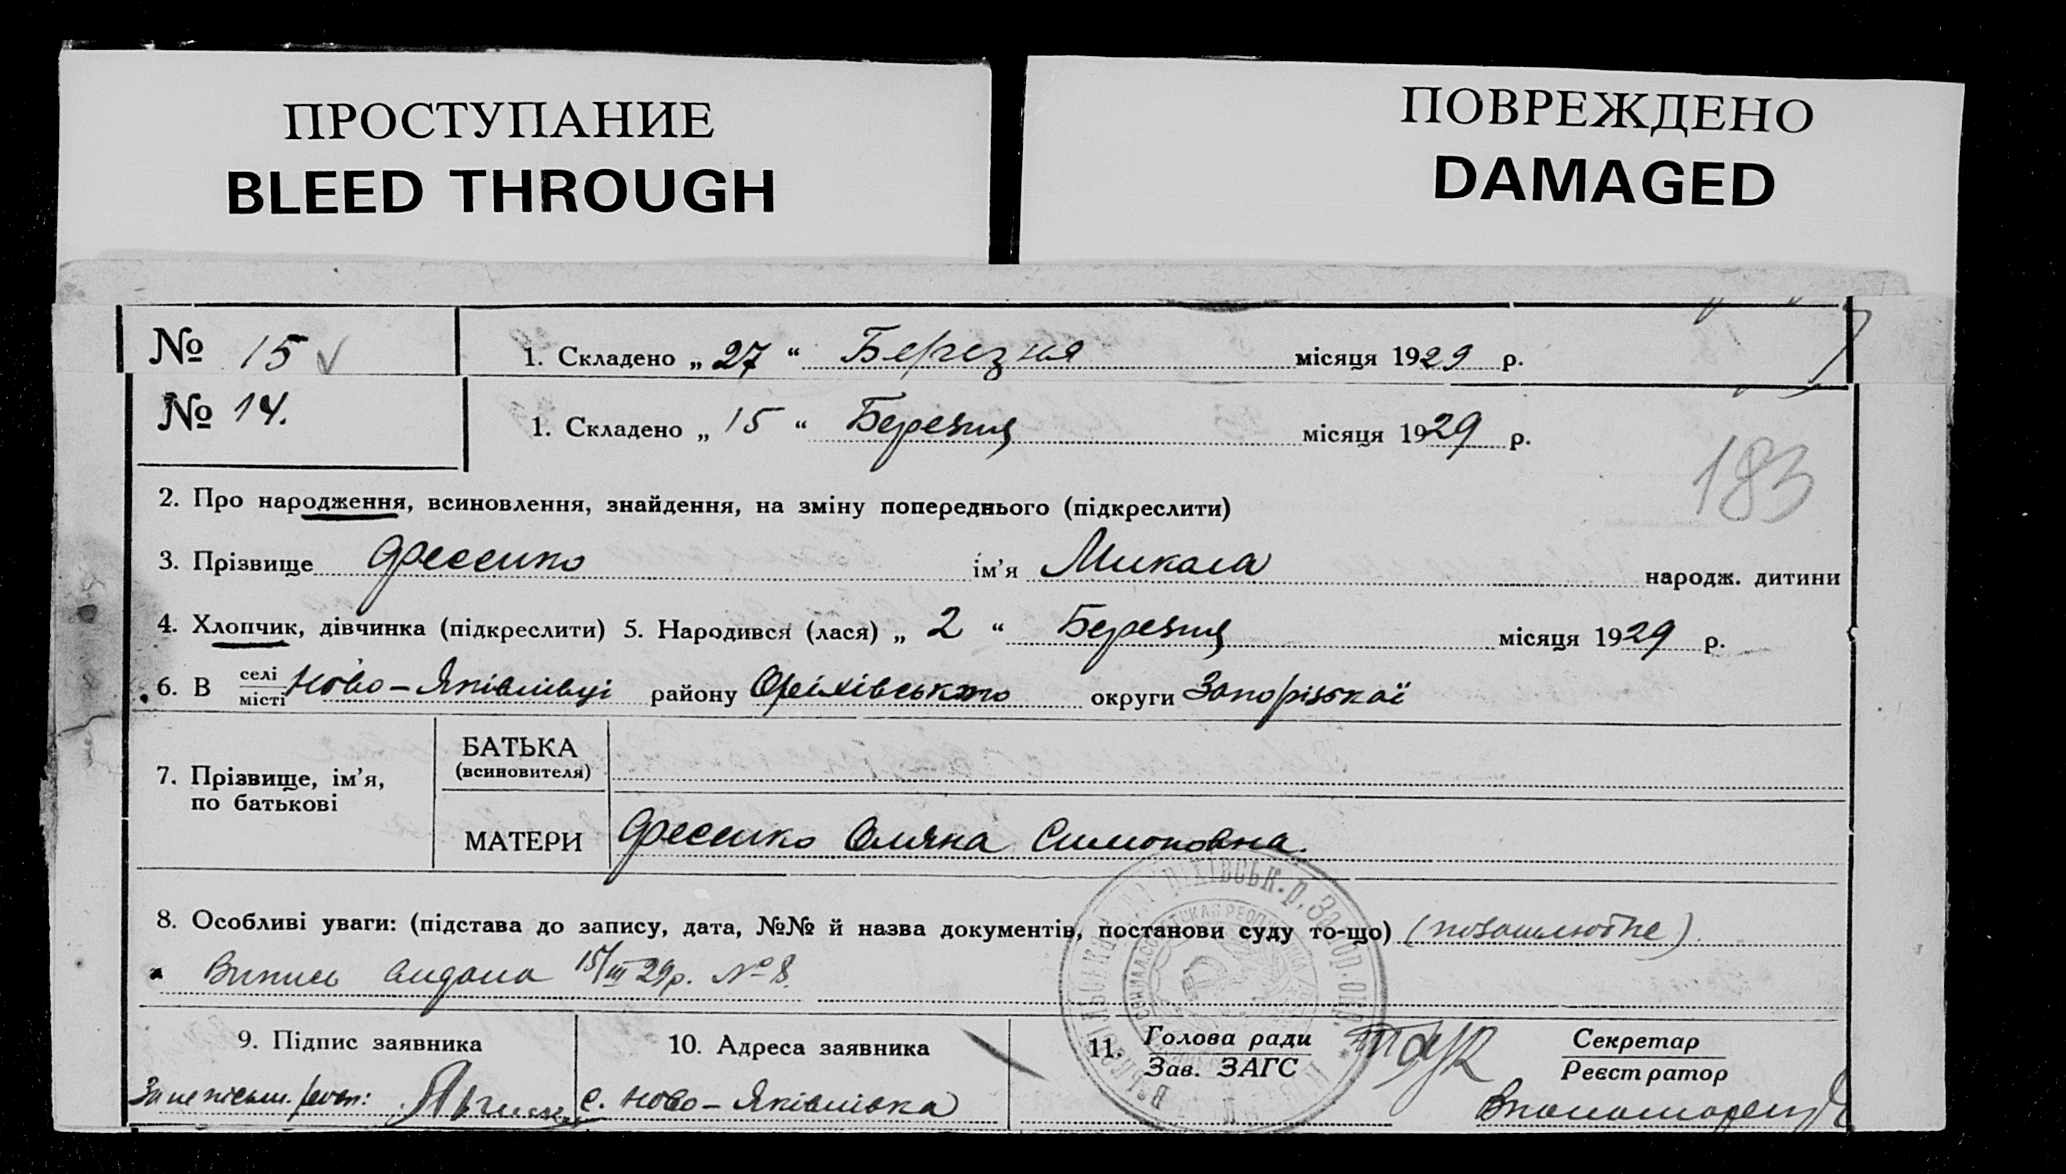 ПРОСТУПАНИЕ
BLEED THROUGH
ПОВРЕЖДЕНО
DAMAGED
№ 15 1. Складено „ 27 “ Березня місяця 1929 р.
№ 14. 1. Складено „ 15 “ Березня місяця 1929 р.
183
2. Про народження, всиновлення, знайдення, на зміну попереднього (підкреслити)
3. Прізвище Фесенко ім’я Микола народж. дитини
4. Хлопчик, дівчинка (підкреслити) 5. Народився (лася) „ 2 “ Березня місяця 1929 р.
6. В селі місті Ново-Яківлівці району Оріхівського округи Запорізької
7. Прізвище, ім’я, по батькові
БАТЬКА
(всиновителя)
МАТЕРИ Фесенко Омяна Симоновна.
8. Особливі уваги: (підстава до запису, дата, №№ й назва документів, постанови суду то-що) (позашлюбне)
Випись видана 15/III 29р. № 8.
9. Підпис заявника 10. Адреса заявника 11. Голова ради Секретар
Зав. ЗАГС Реєстратор
За непісьм. с. Ново-Яківлівка